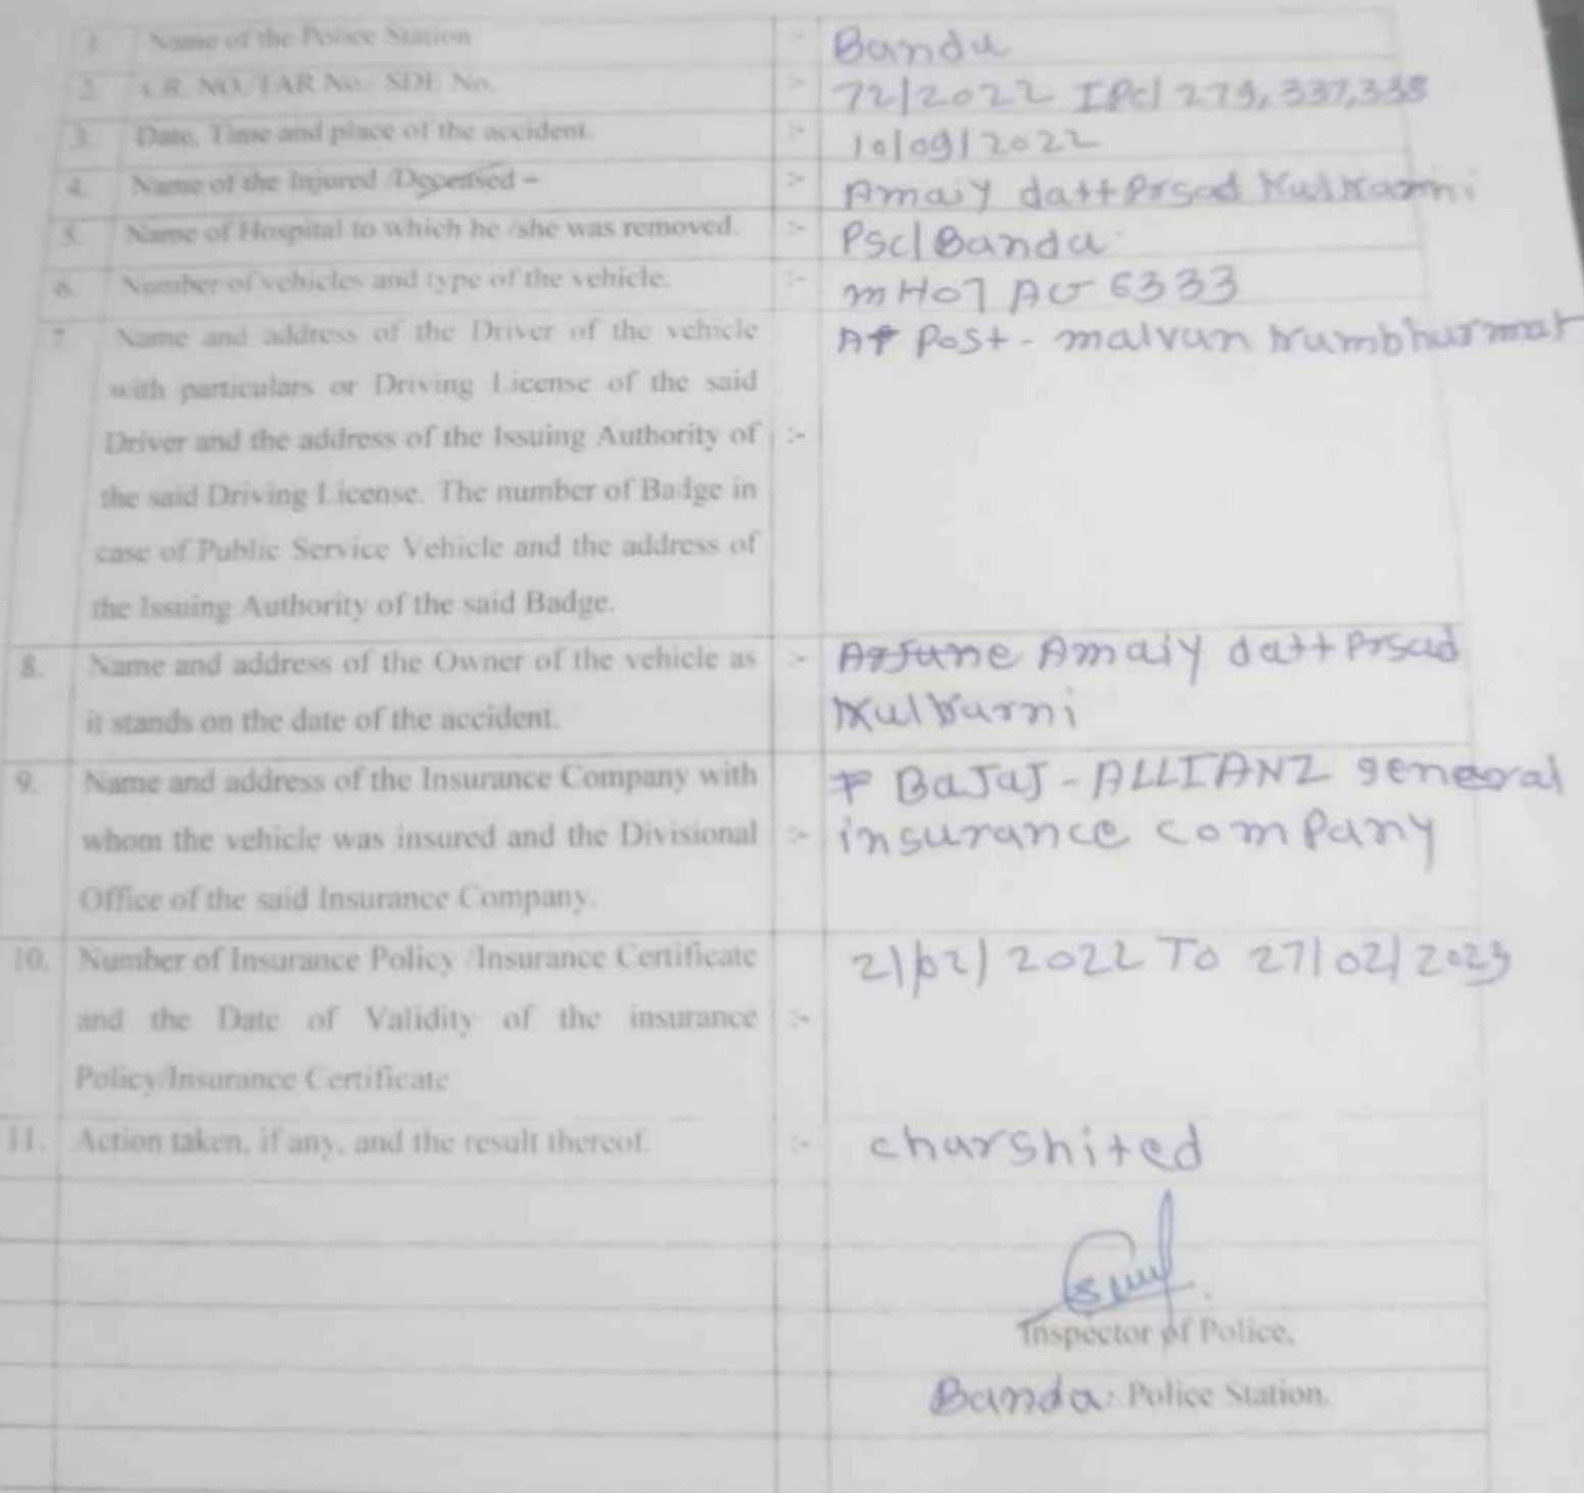 1. Name of the Police Station :- Banda
2. C.R. NO./TAR No./ SDE No. :- 72/2022 IPC/ 279, 337,338
3. Date, Time and place of the accident. :- 10/09/2022
4. Name of the Injured /Deceased – :- Amaiy datt Prsad Kulkarni
5. Name of Hospital to which he /she was removed. :- Psc/ Banda
6. Number of vehicles and type of the vehicle. :- mH07 AG 6333
7. Name and address of the Driver of the vehicle At Post - malvan kumbhurmat
with particulars or Driving License of the said
Driver and the address of the Issuing Authority of :-
the said Driving License. The number of Badge in
case of Public Service Vehicle and the address of
the Issuing Authority of the said Badge.
8. Name and address of the Owner of the vehicle as :- Amaiy datt Prsad
it stands on the date of the accident. Kulkarni
9. Name and address of the Insurance Company with BaJaJ - ALLIANZ general
whom the vehicle was insured and the Divisional :- insurance company
Office of the said Insurance Company.
10. Number of Insurance Policy /Insurance Certificate 21/02/2022 To 27/02/2023
and the Date of Validity of the insurance :-
Policy/Insurance Certificate
11. Action taken, if any, and the result thereof. :- charshited
Inspector of Police,
Banda Police Station.